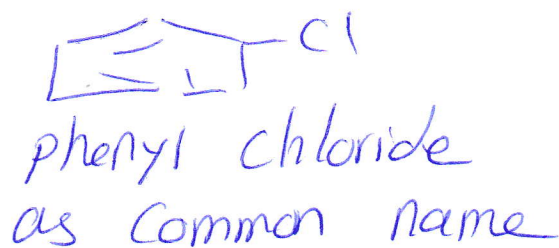 Cl
phenyl chloride
as common name